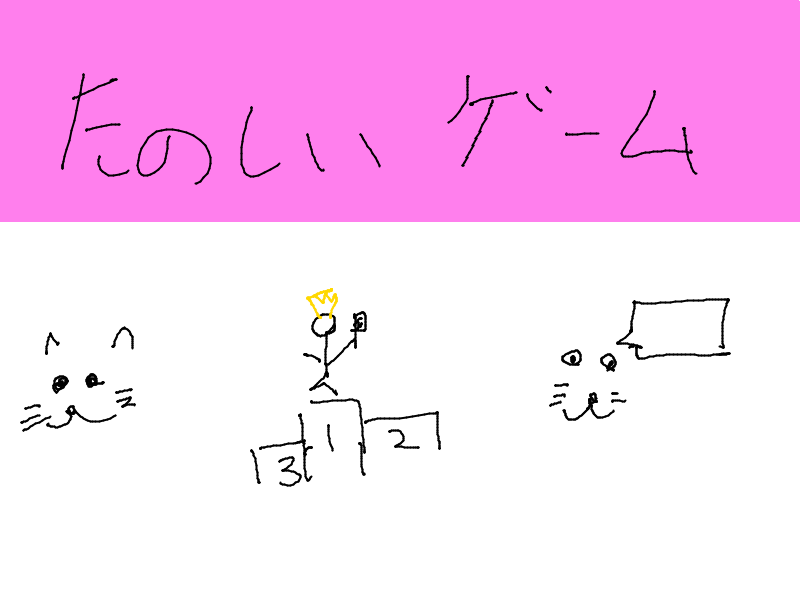 たのしいゲーム
3 1 2